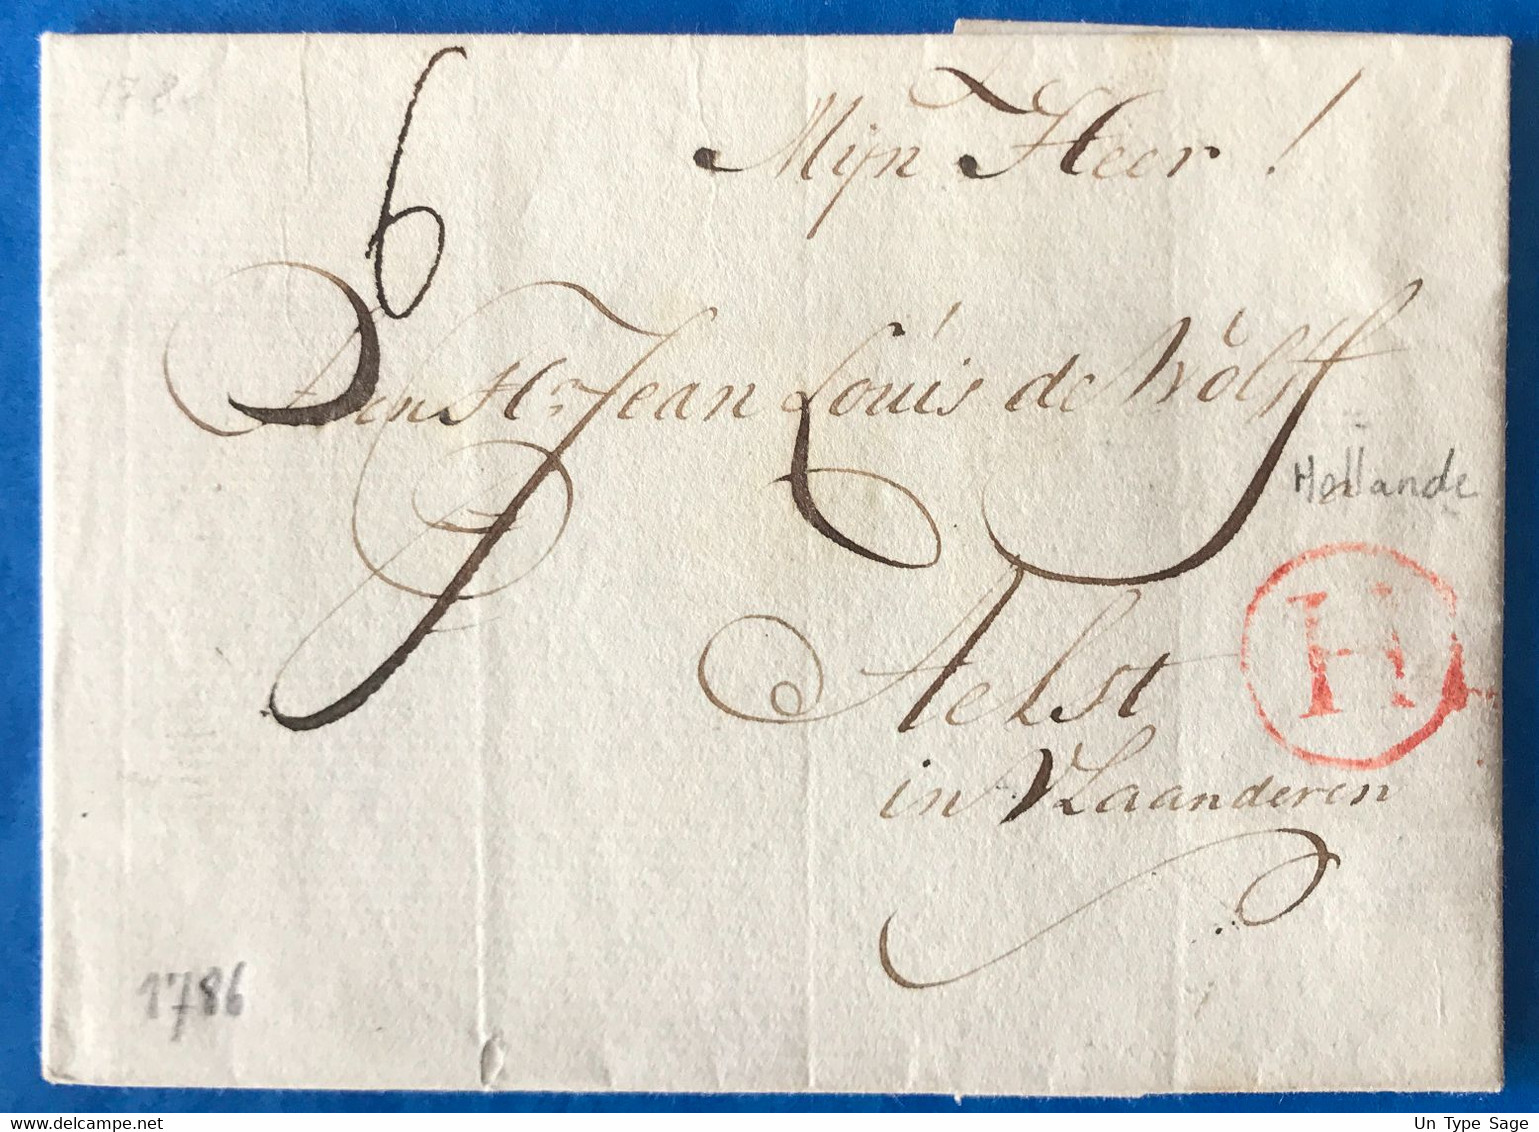 178
6
Mijn Heer!
Den Hr Jean Louis de Wolff
Hollande
Aelst
H
in Vlaanderen
1786
Un Type Sage